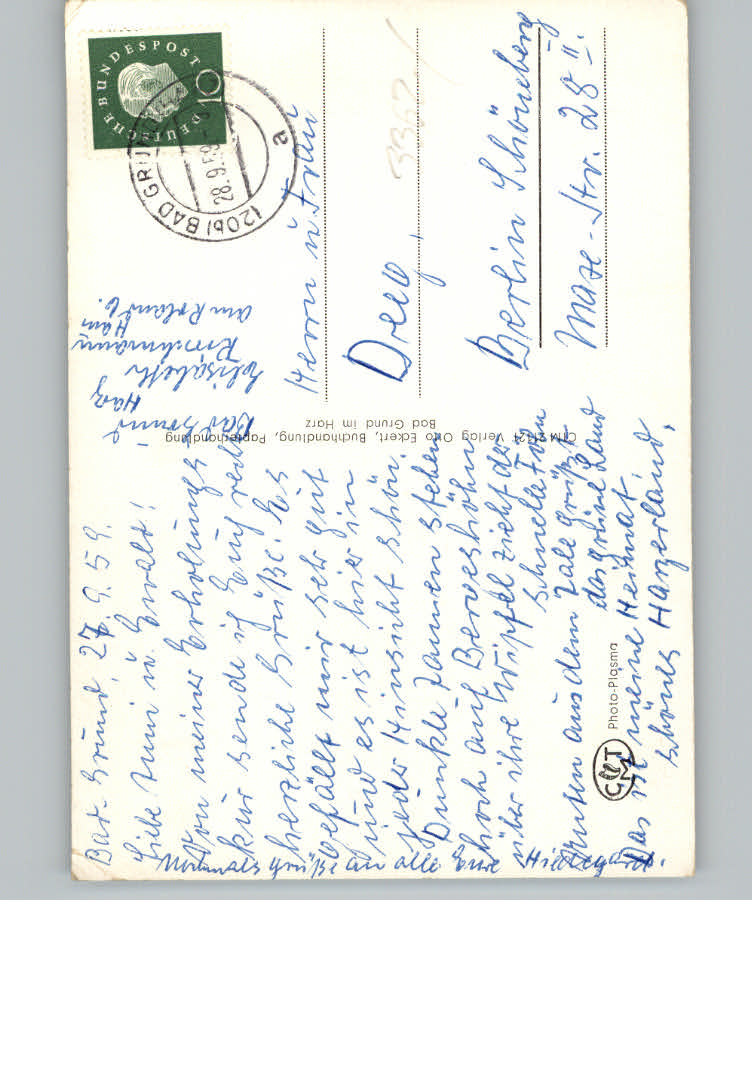 Bad Grund, 27.9.59.
Liebe Tuni u. Ewald!
Von meiner Erholungs-
kur sende ich Euch recht
herzliche Grüße. Es
gefällt mir sehr gut
und es ist hier in
jeder Hinsicht schön.
Dunkle Tannen stehen
hoch auf Bergeshöhn
über ihre Wipfel zieht der
schnelle Fön
Unten aus dem Tale grüßt
das grüne Land
Das ist meine Heimat
schönes Harzerland.
Nochmals Grüße an alle Eure Hildegard.
Bad Grund
Harz
Elisabeth
Haus
am Roland 6.
CTM 21121 Verlag Otto Eckert, Buchhandlung, Papierhandlung
Bad Grund im Harz
CTM
Photo-Plasma
DEUTSCHE BUNDESPOST
10
(20b) BAD GRUND
28.9.59
a
3367/
Herrn u Frau
Berlin Schöneberg
Str. 28 II.